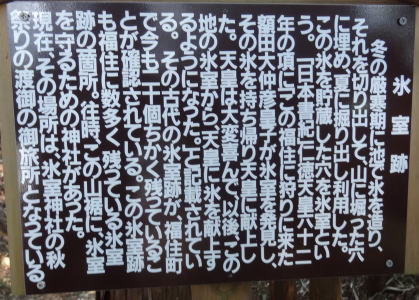 氷室跡
冬の厳寒期に池で氷を造り、
それを切り出して、山に掘った穴
に埋め、夏に掘り出し利用した。
この氷を貯蔵した穴を氷室とい
う。「日本書紀」仁徳天皇六十二
年の項に「この福住に狩りに来た
額田大仲彦皇子が氷室を発見し、
その氷を持ち帰り天皇に献上し
た。天皇は大変喜んで、以後、この
地の氷室から天皇に氷を献上す
るようになった。」と記載されてい
る。その古代の氷室跡が、福住町
で今も二十個ちかく残っているこ
とが確認されている。この氷室跡
も福住に数多く残っている氷室
跡の箇所。往時、この山裾に、氷室
を守るための神社があった。
現在、その場所は、氷室神社の秋
祭りの渡御の御旅所となっている。